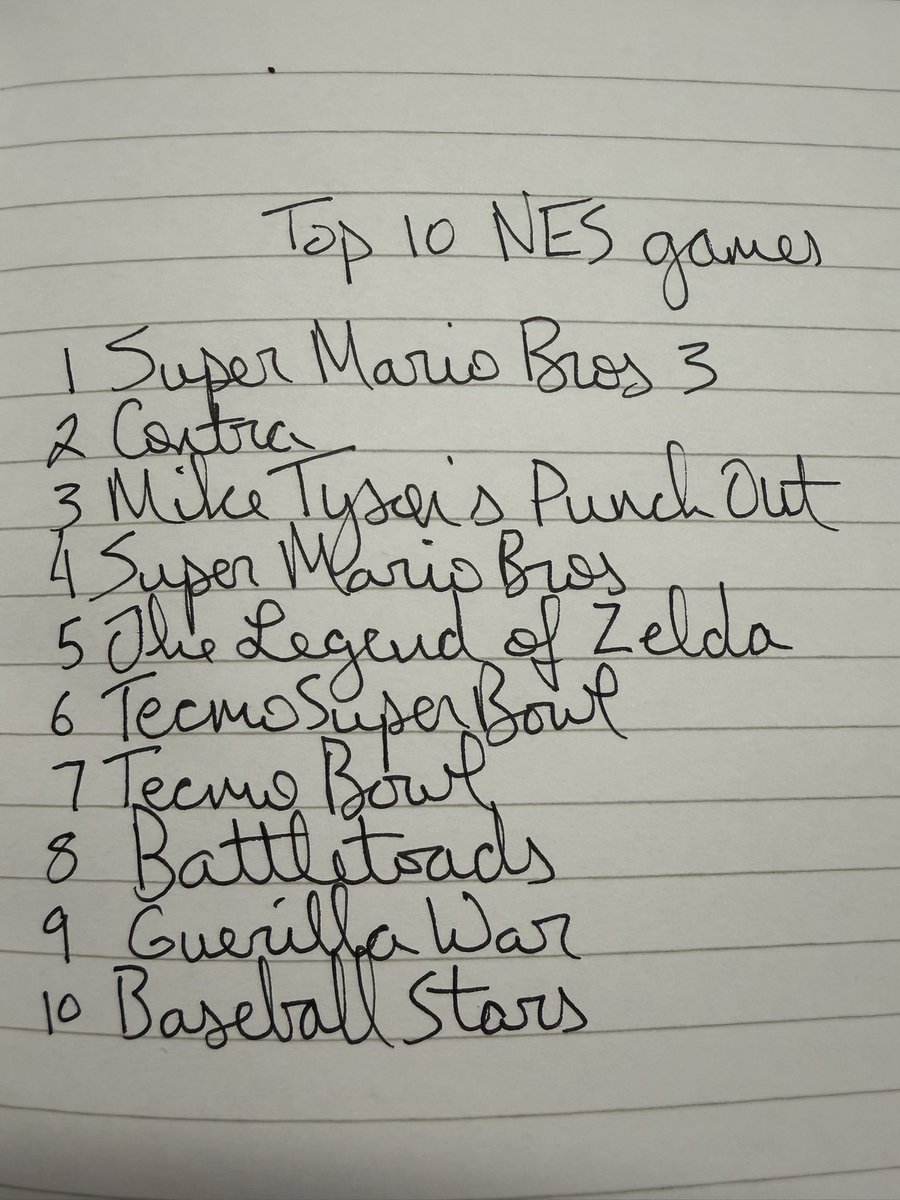 Top 10 NES games
1 Super Mario Bros 3
2 Contra
3 Mike Tyson's Punch Out
4 Super Mario Bros
5 The Legend of Zelda
6 Tecmo Super Bowl
7 Tecmo Bowl
8 Battletoads
9 Guerilla War
10 Baseball Stars